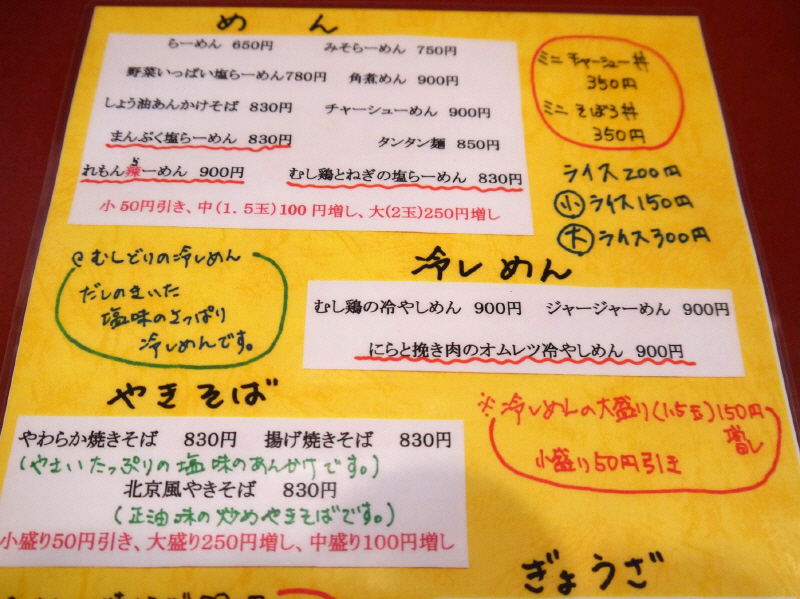 めん
らーめん 650円 みそらーめん 750円
野菜いっぱい塩らーめん780円 角煮めん 900円
しょう油あんかけそば 830円 チャーシューめん 900円
まんぷく塩らーめん 830円 タンタン麺 850円
れもん辣ーめん 900円 むし鶏とねぎの塩らーめん 830円
ら
小50円引き、中(1.5玉)100円増し、大(2玉)250円増し
ミニチャーシュー丼
350円
ミニそぼろ丼
350円
ライス200円
小ライス150円
大ライス300円
むしどりの冷しめん
だしのきいた
塩味のさっぱり
冷しめんです。
冷しめん
むし鶏の冷やしめん 900円 ジャージャーめん 900円
にらと挽き肉のオムレツ冷やしめん 900円
※冷しめんの大盛り(1.5玉)150円
増し
小盛り50円引き
やきそば
やわらか焼きそば 830円 揚げ焼きそば 830円
(やさいたっぷりの塩味のあんかけです。)
北京風やきそば 830円
(正油味の炒めやきそばです。)
小盛り50円引き、大盛り250円増し、中盛り100円増し
ぎょうざ